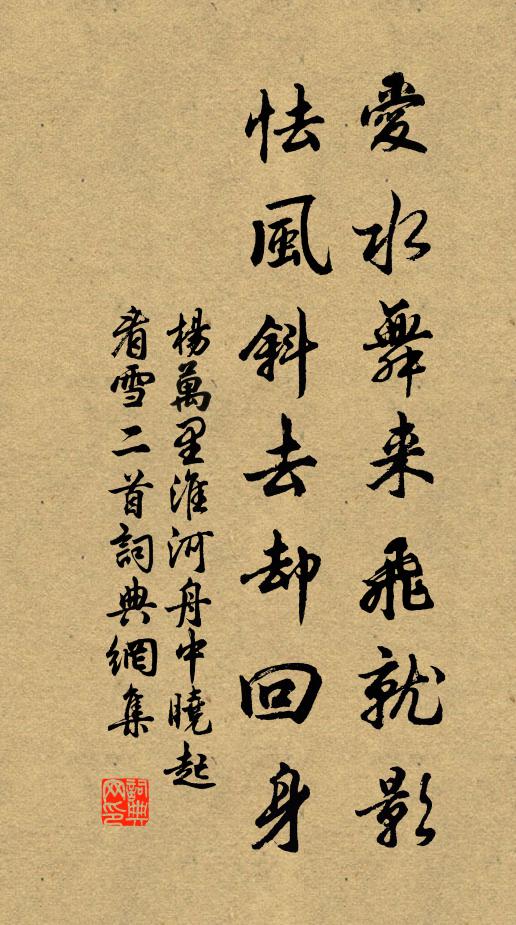 愛水舞来飛就影
怯風斜去却回身
楊萬里淮河舟中曉起
看雪二首詞典網集
詞典
网印